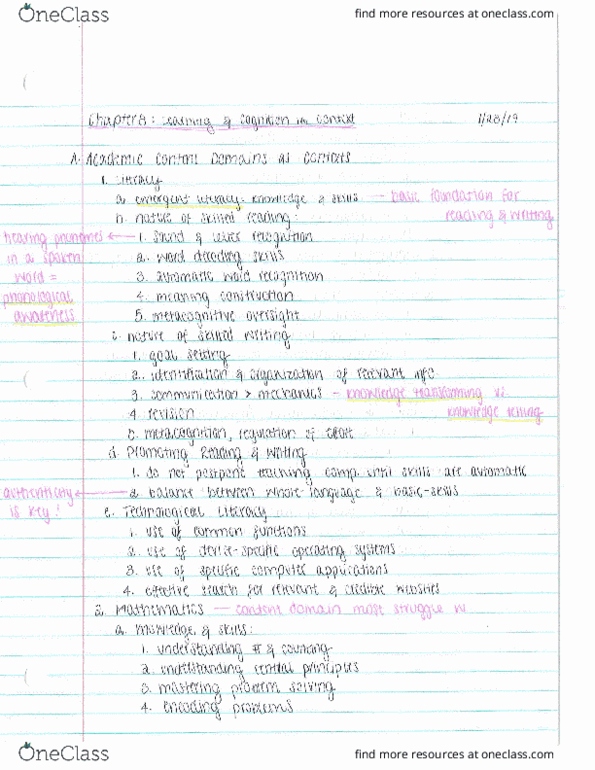 OneClass
find more resources at oneclass.com
Chapter 8: Learning & Cognition in Context
1/28/19
A. Academic Content Domains as Contexts
1. Literacy
a. emergent literacy: knowledge & skills — basic foundation for
reading & writing
b. nature of skilled reading:
hearing phonemes ← 1. sound & letter recognition
in a spoken
2. word decoding skills
word =
3. automatic word recognition
phonological
4. meaning construction
awareness
5. metacognitive oversight
c. nature of skilled writing
1. goal setting
2. identification & organization of relevant info
3. communication > mechanics – knowledge transforming vs.
knowledge telling
4. revision
5. metacognition, regulation of
d. Promoting Reading & Writing
1. do not postpone teaching comp. until skills are automatic
authenticity ← 2. balance between whole language & basic-skills
is key!
e. Technological Literacy
1. use of common functions
2. use of device-specific operating systems
3. use of specific computer applications
4. effective search for relevant & credible websites
2. Mathematics — content domain most struggle w/
a. knowledge & skills:
1. understanding #s & counting
2. understanding central principles
3. mastering problem solving
4. encoding problems
OneClass
find more resources at oneclass.com